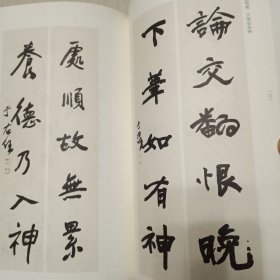 論交翻恨晚
下筆如有神
處順故無累
養德乃入神
于右任